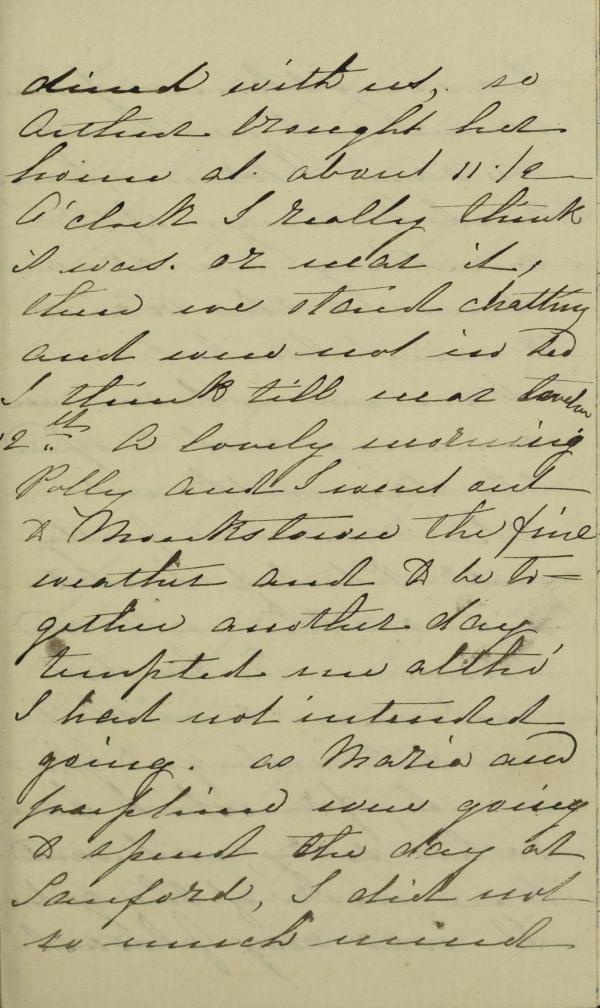 dined with us, so
Arthur brought her
home at about 11.1/2
O'clock I really think
it was. or near it,
then we stand chatting
and were not in bed
I think till near twelve
12th. A lovely morning
Polly and I went out
to Monkstown the fine
weather and to be to=
gether another day
tempted me altho'
I had not intended
going. as Maria and
Josephine were going
to spend the day at
Sanford, I did not
so much mind